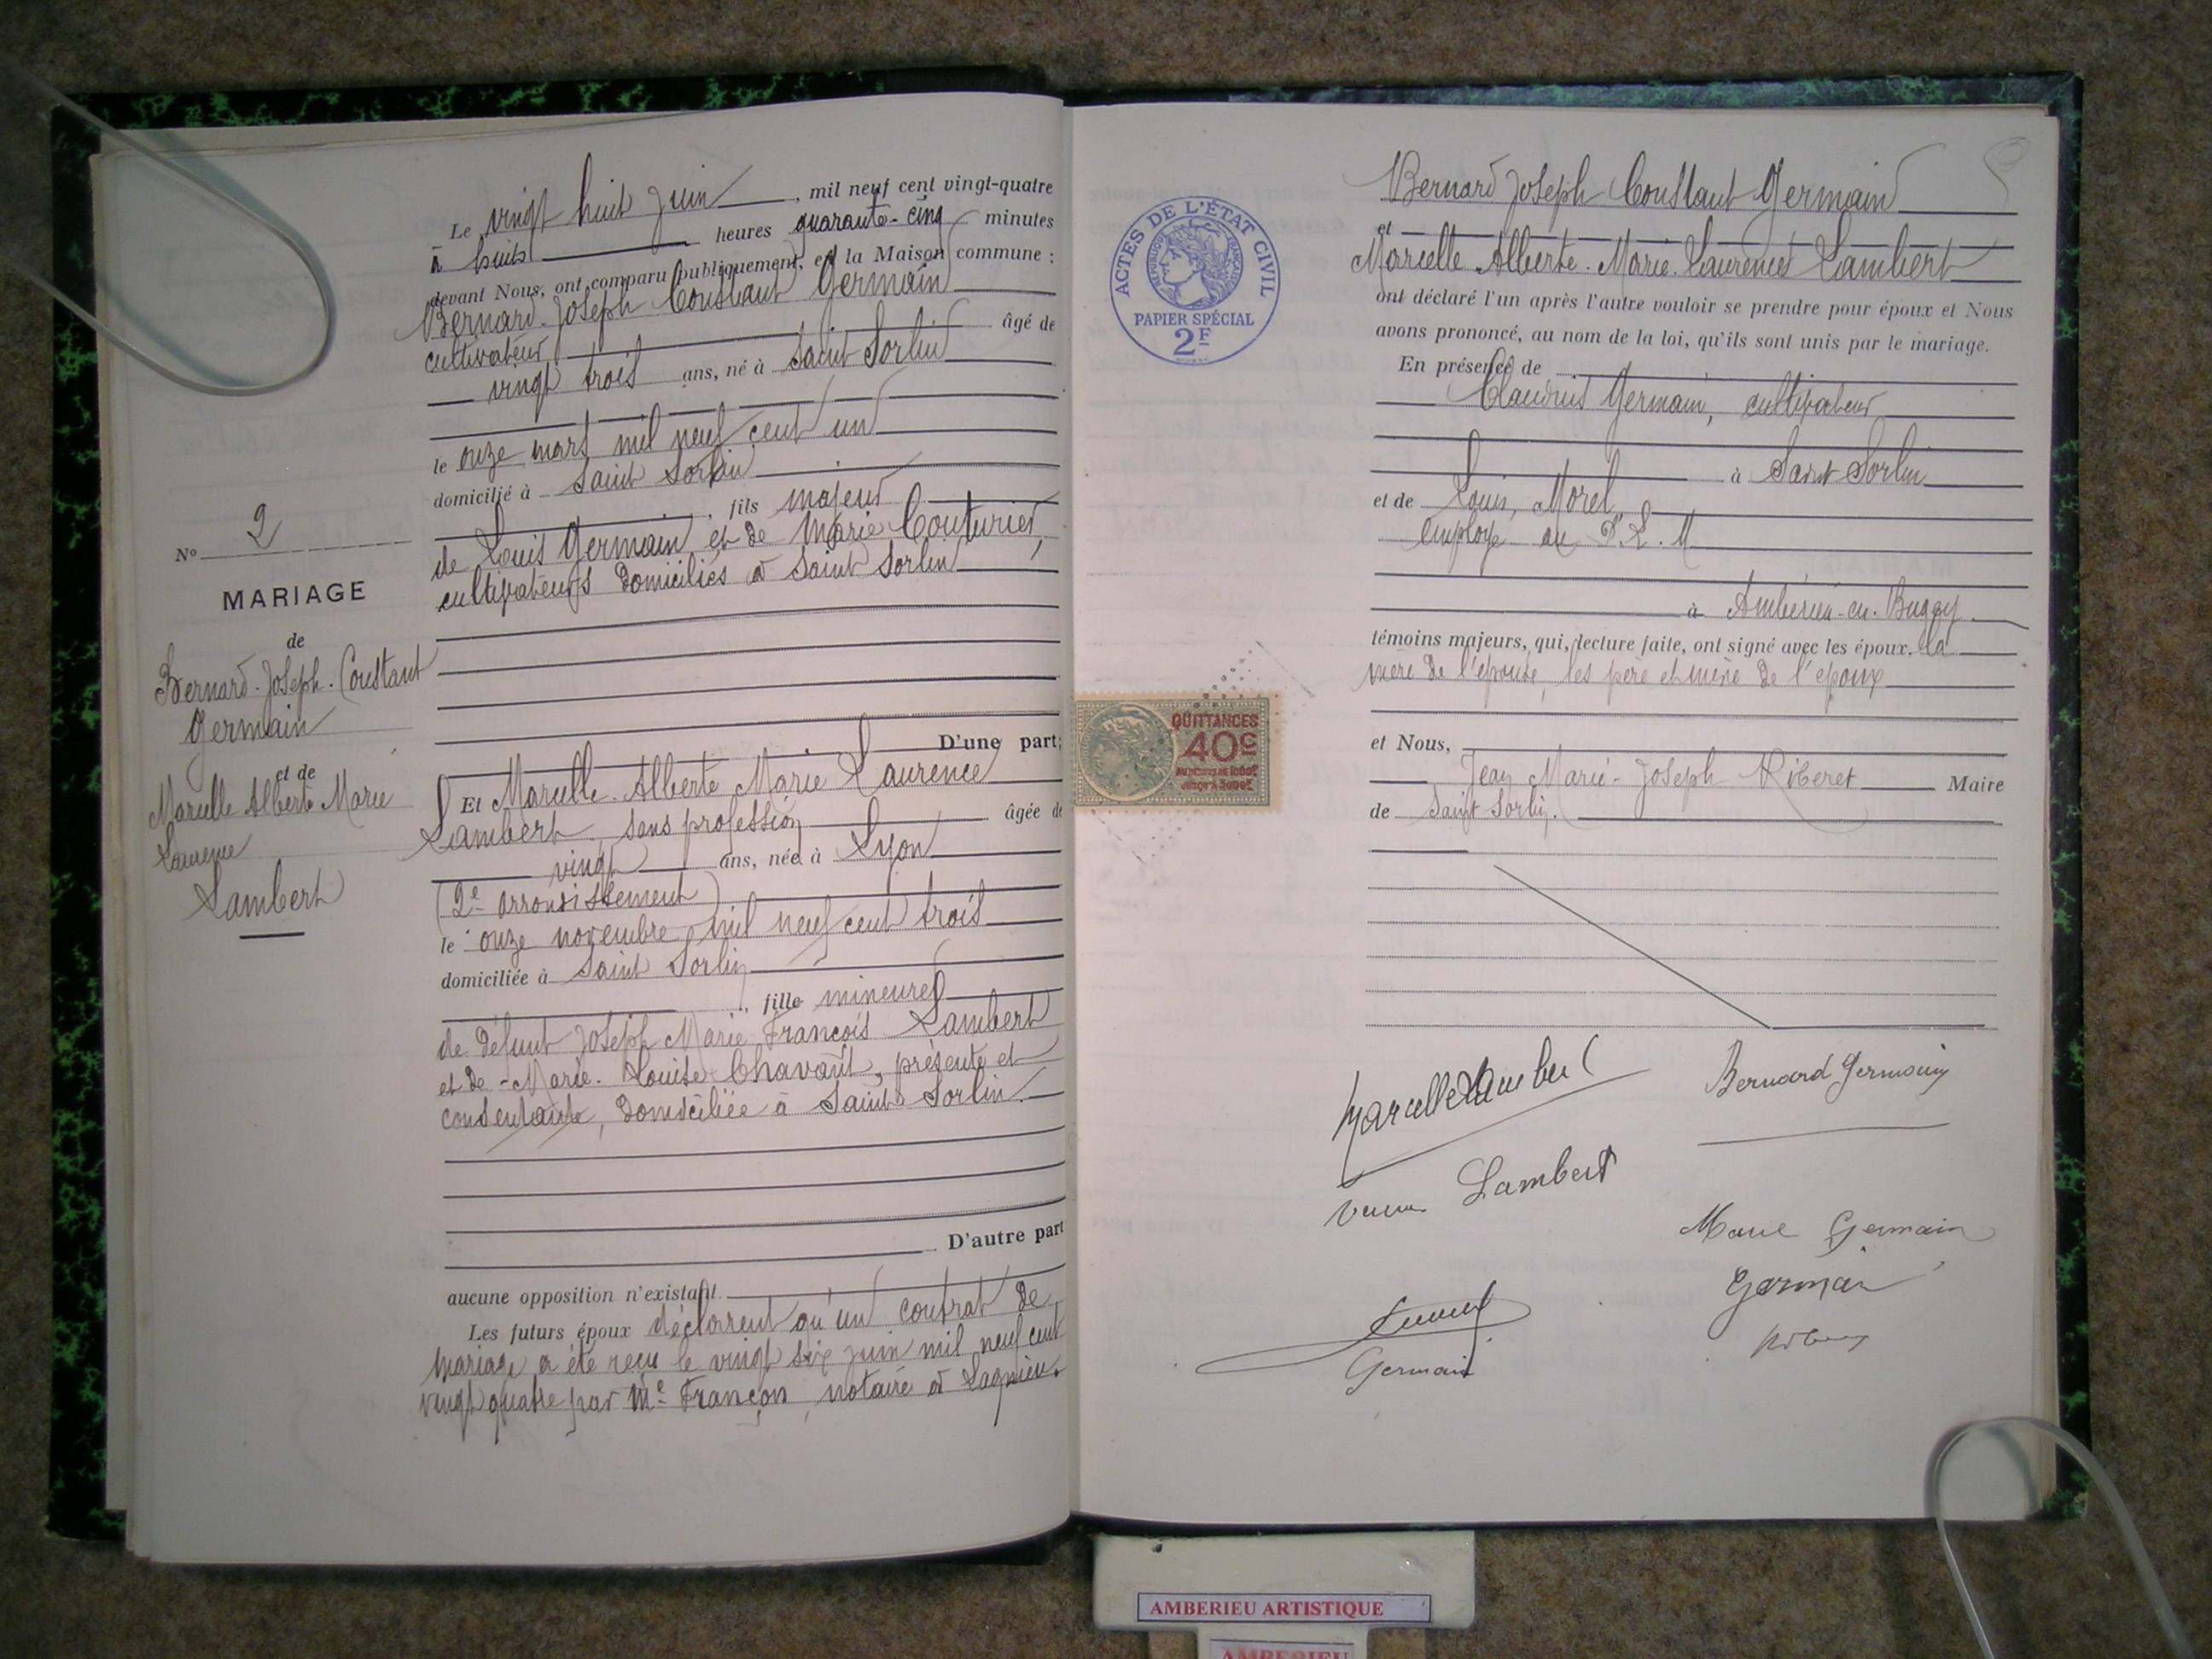 Le vingt huit juin, mil neuf cent vingt-quatre
à huit heures quarante-cinq minutes
devant Nous, ont comparu publiquement, en la Maison commune :
Bernard-Joseph Constant Germain
cultivateur, âgé de
vingt trois ans, né à Saint Sorlin
le onze mars mil neuf cent un
domicilié à Saint Sorlin
, fils majeur
de Louis Germain et de Marie Couturier,
cultivateurs domiciliés à Saint Sorlin
D'une part;
Et Marcelle-Alberte Marie Laurence
Lambert, sans profession âgée de
vingt ans, née à Lyon
(2e arrondissement)
le onze novembre mil neuf cent trois
domiciliée à Saint Sorlin
, fille mineure
de défunt Joseph Marie François Lambert
et de Marie-Louise Chavant, présente et
consentante, domiciliée à Saint Sorlin.
D'autre part
aucune opposition n'existant.
Les futurs époux déclarent qu'un contrat de
mariage a été reçu le vingt six juin mil neuf cent
vingt quatre par Me Françon, notaire à Lagnieu.
No 2
MARIAGE
de
Bernard-Joseph-Constant
Germain
et de
Marcelle Alberte Marie
Laurence
Lambert
ACTES DE L'ÉTAT CIVIL
RÉPUBLIQUE FRANÇAISE
PAPIER SPÉCIAL
2F
QUITTANCES
40c
Bernard Joseph Constant Germain
et
Marcelle Alberte-Marie-Laurence Lambert
ont déclaré l'un après l'autre vouloir se prendre pour époux et Nous
avons prononcé, au nom de la loi, qu'ils sont unis par le mariage.
En présence de
Claudius Germain, cultivateur
à Saint Sorlin
et de Louis, Morel,
employé au P.L.M
à Ambérieu-en-Bugey.
témoins majeurs, qui, lecture faite, ont signé avec les époux, la
mère de l'épouse, les père et mère de l'époux
et Nous,
Jean Marie-Joseph Riberet Maire
de Saint Sorlin.
Marcelle Lambert
Bernard Germain
Lambert
Marie Germain
Germain
Germain
AMBERIEU ARTISTIQUE
AMBERIEU